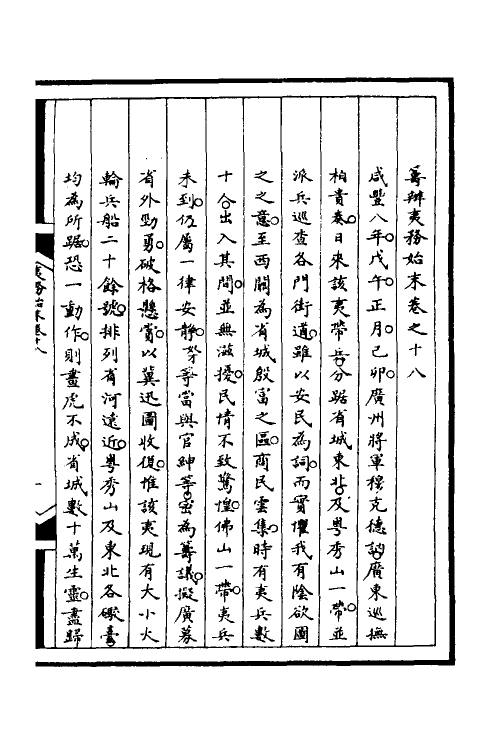 籌辦夷務始末卷之十八
咸豐八年戊午正月己卯廣州將軍穆克德訥廣東巡撫
柏貴奏日來該夷帶兵分踞省城東北及粵秀山一帶並
派兵巡查各門街道雖以安民為詞而實懼我有陰欲圖
之之意至西關為省城殷富之區商民雲集時有夷兵數
十人出入其間並無滋擾民情不致驚惶佛山一帶夷兵
未到仍屬一律安靜等當與官紳等密為籌議擬廣募
省外勁勇破格懸賞以冀迅圖收復惟該夷現有大小火
輪兵船二十餘號排列省河遠近粵秀山及東北各礮臺
均為所踞恐一動作則畫虎不成省城數十萬生靈盡歸
夷務始末卷十八
一